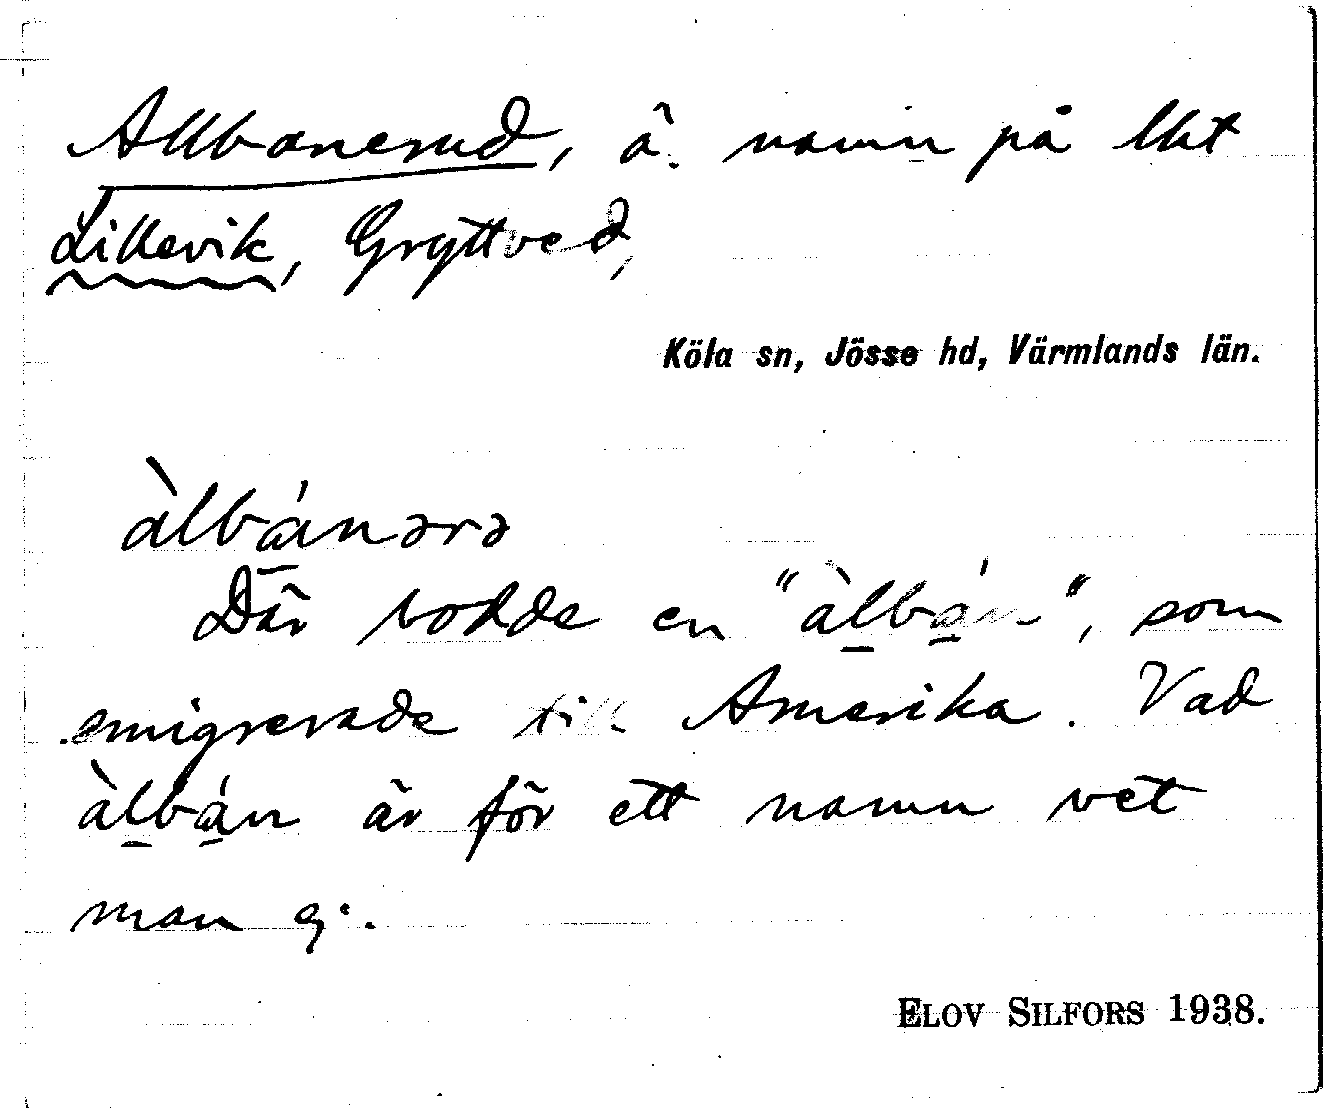 Allbanerud, ä. namn på lht
Lillevik, Gryttved,
Köla sn, Jösse hd, Värmlands län.
àlbánərə
Där bodde en "àlbán", som
emigrerade till Amerika. Vad
àlbán är för ett namn vet
man ej.
ELOV SILFORS 1938.